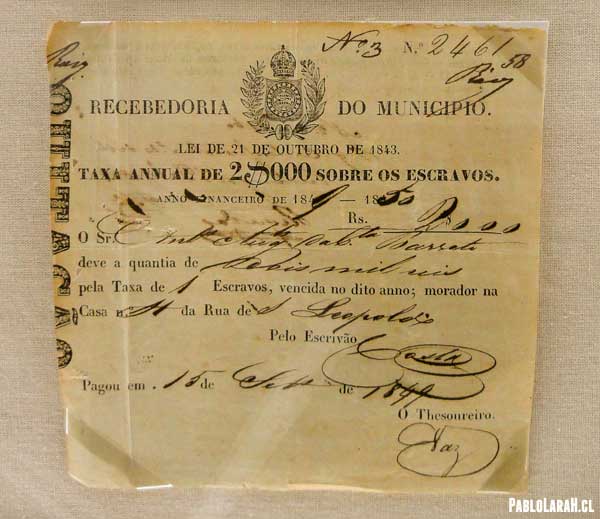 Nº 3 Nº 2461
58
RECEBEDORIA DO MUNICIPIO.
LEI DE 21 DE OUTUBRO DE 1843.
TAXA ANNUAL DE 2$000 SOBRE OS ESCRAVOS.
ANNO FINANCEIRO DE 1849 – 1850
Rs. 2$000
O Sr. Barreto
deve a quantia de dois mil reis
pela Taxa de 1 Escravos, vencida no dito anno; morador na
Casa n. da Rua de S Leopoldo
Pelo Escrivão
Costa
Pagou em 15 de Setº de 1849
O Thesoureiro.
Vaz
QUITAÇÃO
PABLOLARAH.CL